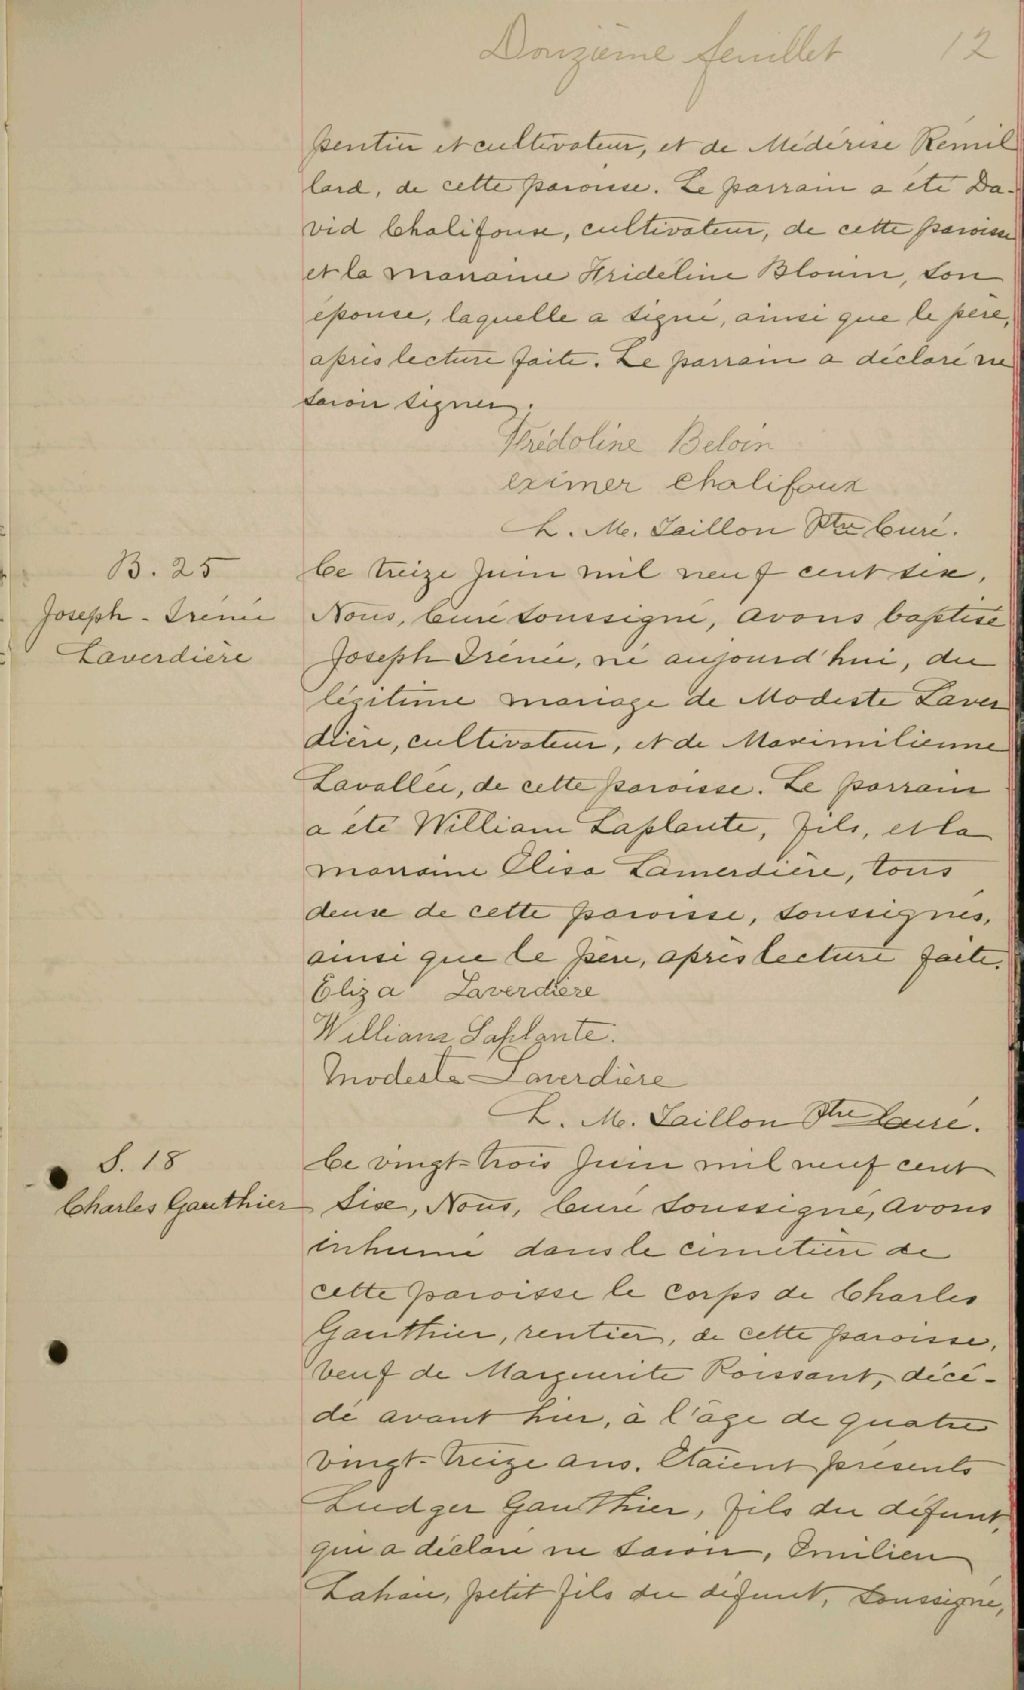 Douzième feuillet 12
pentier et cultivateur, et de Médérise Rémil
lard, de cette paroisse. Le parrain a été Da-
vid Chalifoux, cultivateur, de cette paroisse
et la marraine Fridéline Blouin, son
épouse, laquelle a signé, ainsi que le père,
après lecture faite. Le parrain a déclaré ne
savoir signer.
Frédoline Beloin
eximer chalifoux
L. M. Taillon Ptre Curé.
B. 25
Joseph-Irénée
Laverdière
Ce treize Juin mil neuf cent six,
Nous, Curé soussigné, avons baptisé
Joseph Irénée, né aujourd'hui, du
légitime mariage de Modeste Laver
dière, cultivateur, et de Maximilienne
Lavallée, de cette paroisse. Le parrain
a été William Laplante, fils, et la
marraine Elisa Lamerdière, tous
deux de cette paroisse, soussignés,
ainsi que le père, après lecture faite.
Eliza Laverdière
William Laplante.
Modeste Laverdière
L. M. Taillon Ptre Curé.
S. 18
Charles Gauthier
Ce vingt-trois Juin mil neuf cent
six, Nous, Curé soussigné, avons
inhumé dans le cimetière de
cette paroisse le corps de Charles
Gauthier, rentier, de cette paroisse,
veuf de Marguerite Roissant, décé-
dé avant hier, à l'âge de quatre
vingt-treize ans. Etaient présents
Ludger Gauthier, fils du défunt,
qui a déclaré ne savoir, Emilien
Lahaie, petit fils du défunt, soussigné,